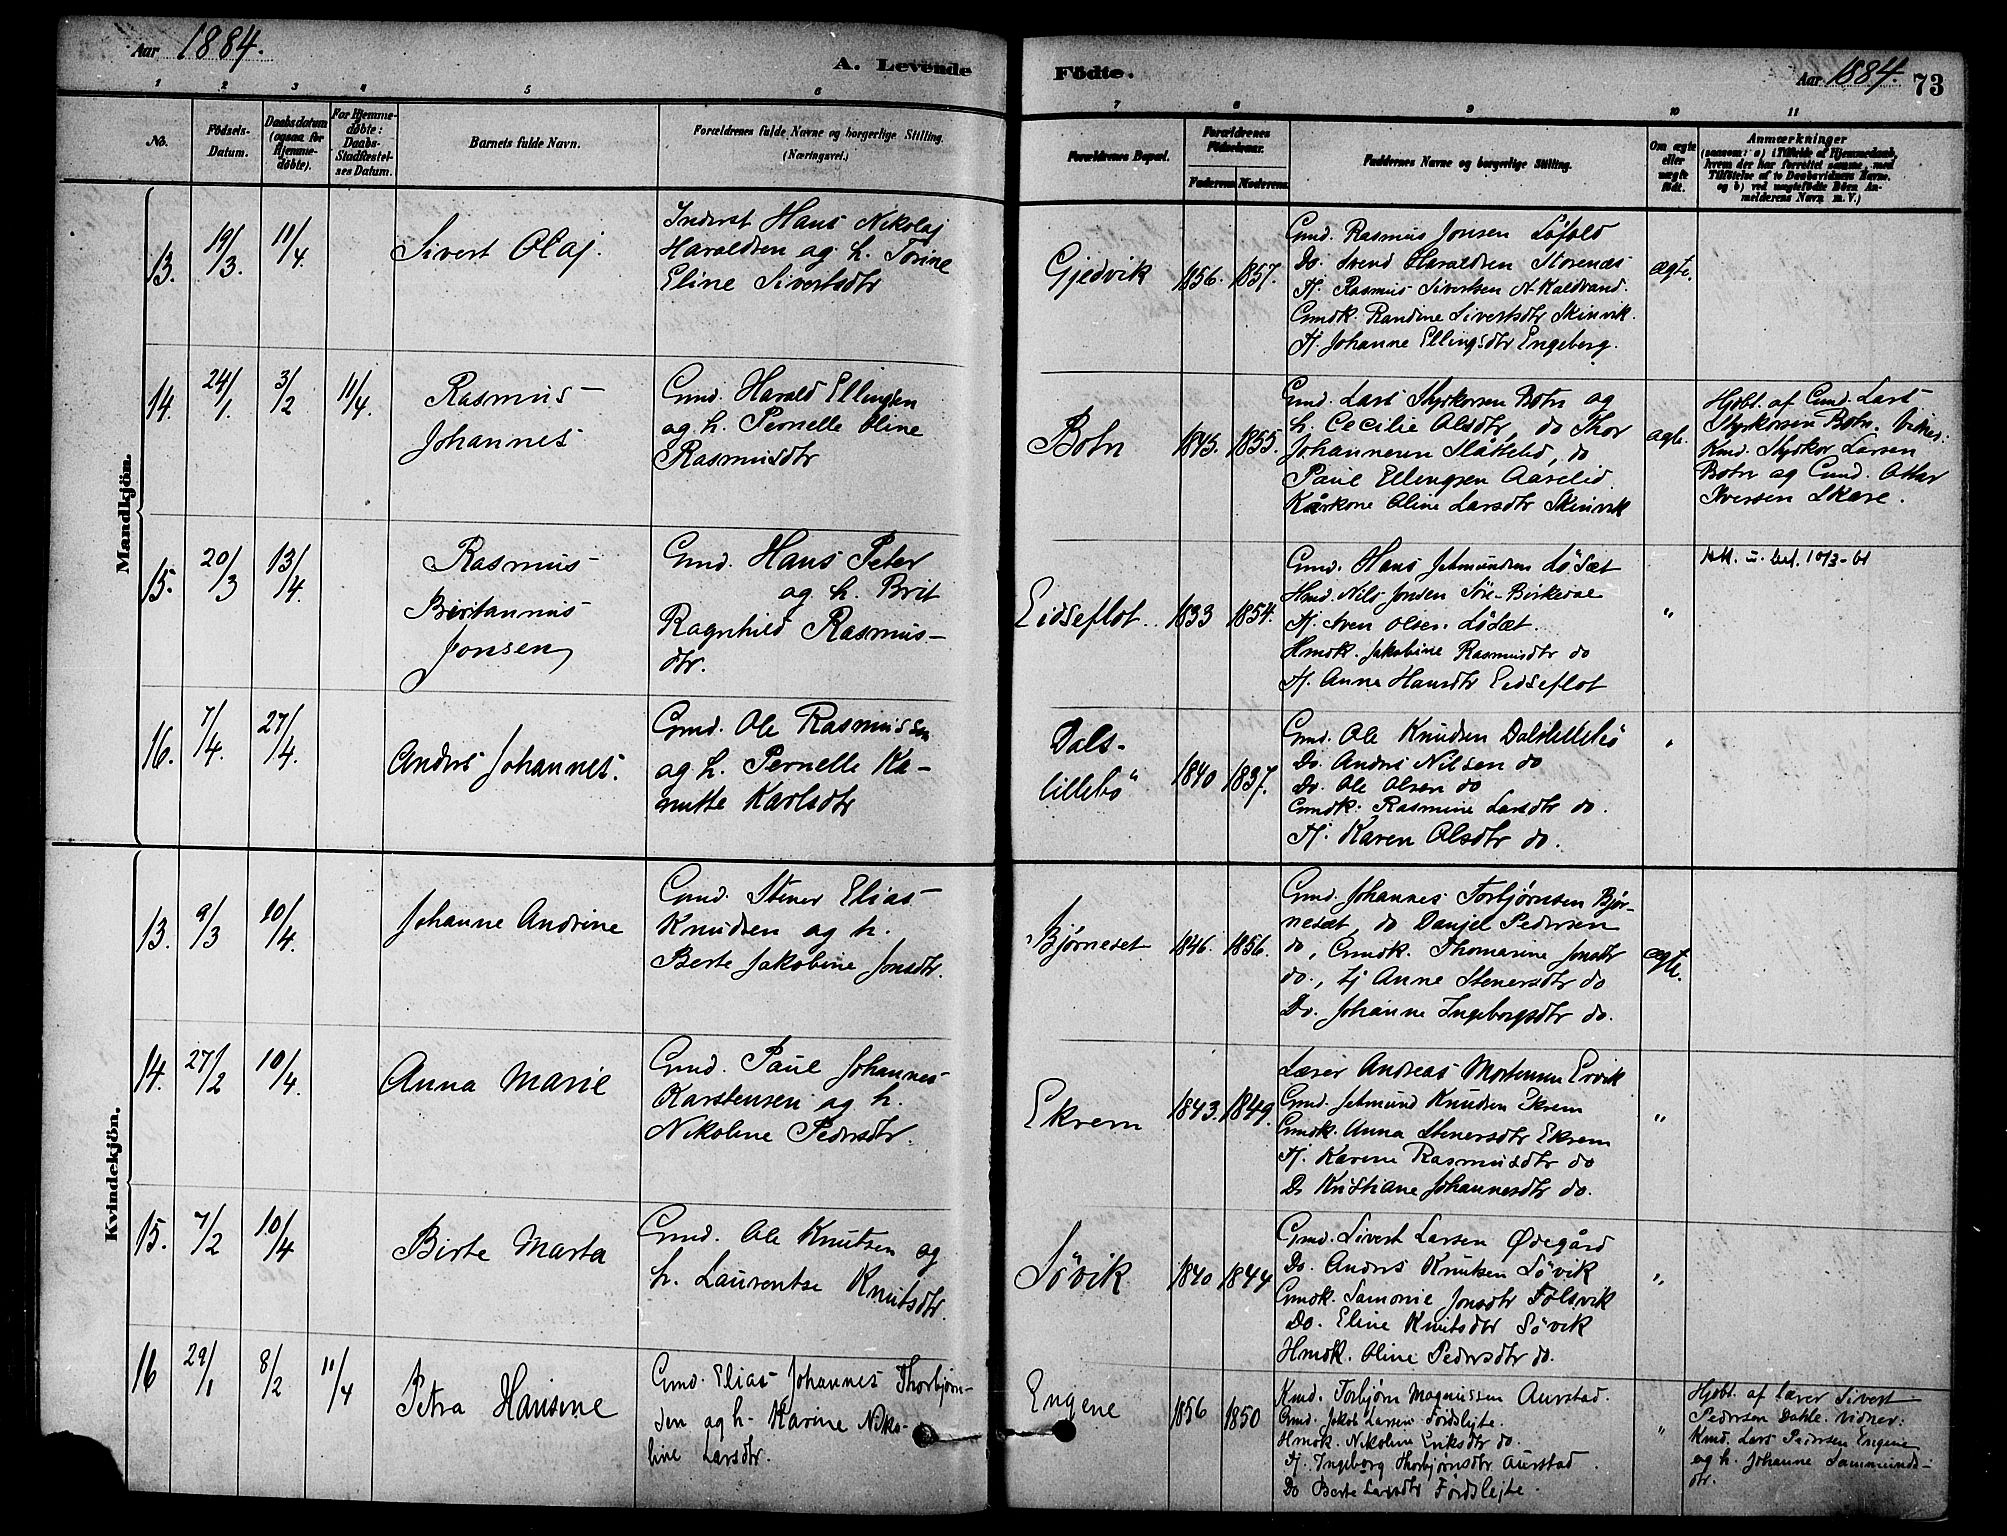 Aar 1884.
A. Levende Fødte.
Aar 1884. 73
1 2 3 4 5 6 7 8 9 10 11
No.
Fødsels-Datum.
Daabsdatum (ogsaa for Hjemmedøbte).
For Hjemmedøbte: Daabs-Stadfæstelses Datum.
Barnets fulde Navn.
Forældrenes fulde Navne og borgerlige Stilling. (Næringsvei.)
Forældrenes Bopæl.
Forældrenes Fødselsaar.
Faderens. Moderens.
Faddernes Navne og borgerlige Stilling.
Om ægte eller uægte født.
Anmærkninger
(saasom: a) i Tilfælde af Hjemmedaab, hvem der har forrettet samme, med Tilføielse af to Daabsvidners Navne. og b) ved uægtefødte Børn Anmelderens Navn m. V.)
Mandkjön.
13. 19/3. 11/4.
Sivert Olaj.
Inderst Hans Nikolaj
Haraldsen og h. Torine
Eline Sivertsdtr
Gjedvik 1856. 1857.
Gmd. Rasmus Jonsen Löfold
Do. Svend Haraldsen Storenæs
Tj. Rasmus Sivertsen N. Kaldvand.
Gmdk. Randine Sivertsdtr Skinvik.
Tj. Johanne Ellingsdtr Engeberg.
ægte.
14. 24/1. 3/2 11/4.
Rasmus
Johannes
Gmd. Harald Ellingsen
og h. Pernelle Oline
Rasmusdtr
Botn 1845. 1855.
Gmd. Lars Styrkorsen Botn og
h. Cecilie Olsdtr, do Thor
Johannesen Slåttelid, do
Paul Ellingsen Aarelid
Kårkone Oline Larsdtr Skinvik
ægte.
Hjdbt. af Gmd. Lars
Styrkorsen Botn. Vitner:
Kmd. Styrkor Larsen
Botn og Gmd. Ottar
Iversen Skare.
15. 20/3 13/4.
Rasmus
Bertannus
Jonsen
Gmd. Hans Peter
og h. Brit
Ragnhild Rasmus-
dtr.
Eidseflot. 1833 1854.
Gmd. Hans Jetmundsen Lödset
Hmd. Nils Jonsen Søre-Birkedal
Tj. Sven Olsen Lödset.
Hmdk. Jakobine Rasmusdtr do
Tj. Anna Hansdtr Eidseflot
"
16. 7/4. 27/4.
Anders Johannes.
Gmd. Ole Rasmussen
og h. Pernelle Ka-
nutte Karlsdtr
Dals-
lillebö 1840 1837.
Gmd. Ole Knudsen Dalslillebö
Do. Anders Nilsen do
Do. Ole Olsen do
Gmdk. Rasmine Larsdtr do.
Tj. Karen Olsdtr do.
"
Kvindekjön.
13. 9/3 10/4.
Johanne Andrine
Gmd. Stener Elias
Knudsen og h.
Berte Jakobine Jonsdtr.
Bjørneset 1846. 1856.
Gmd. Johannes Torbjørnsen Bjør-
nesæt, do Danjel Pedersen
do, Gmdk. Thomasine Jonsdtr
do., tj Anne Stenersdtr do
Do. Johanne Ingeborgsdtr do.
ægte.
14. 27/2 10/4.
Anna Marie
Gmd. Paul Johannes
Karstensen og h.
Nikoline Pedersdtr.
Ekrem 1843. 1849.
Lærer Andreas Mortensen Ervik
Gmd. Jetmund Knudsen Ekrem
Gmdk. Anna Stenersdtr Ekrem
Tj. Karene Rasmusdtr do
Do Kristiane Johannesdtr do.
"
15. 7/2 10/4
Birte Marta
Gmd. Ole Knutsen og
h. Laurentse Knutsdtr.
Sövik 1840 1844
Gmd. Sivert Larsen Ødegård
Do. Anders Knutsen Sövik
Gmdk. Samonie Jonsdtr Folsvik
Do. Eline Knutsdtr Sövik
Hmdk. Oline Pedersdtr do.
"
16 29/1 8/2 11/4
Petra Hansine
Gmd. Elias Johannes Thorbjørn-
sen og h. Karine Niko-
line Larsdtr.
Engene 1856 1850
Kmd. Torbjørn Magnussen Aurstad.
Gmd. Jakob Larsen Fördslejte.
Hmdk. Nikoline Eriksdtr do.
Tj. Ingeborg Thorbjørnsdtr Aurstad.
Do Berte Larsdtr Fördslejte.
"
Hjdbt. af lærer Sivert
Pedersen Dahle. Vidner:
Kmd. Lars Pedersen Engene
og h. Johanne Sammunds-
dtr.